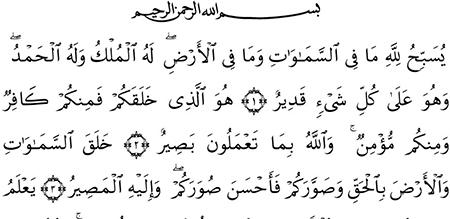 بسم الله الرحمن الرحيم
يُسَبِّحُ لِلَّهِ مَا فِى ٱلسَّمَـٰوَٰتِ وَمَا فِى ٱلْأَرْضِ ۖ لَهُ ٱلْمُلْكُ وَلَهُ ٱلْحَمْدُ ۖ
وَهُوَ عَلَىٰ كُلِّ شَىْءٍ قَدِيرٌ ﴿١﴾ هُوَ ٱلَّذِى خَلَقَكُمْ فَمِنكُمْ كَافِرٌ
وَمِنكُم مُّؤْمِنٌ ۚ وَٱللَّهُ بِمَا تَعْمَلُونَ بَصِيرٌ ﴿٢﴾ خَلَقَ ٱلسَّمَـٰوَٰتِ
وَٱلْأَرْضَ بِٱلْحَقِّ وَصَوَّرَكُمْ فَأَحْسَنَ صُوَرَكُمْ ۖ وَإِلَيْهِ ٱلْمَصِيرُ ﴿٣﴾ يَعْلَمُ